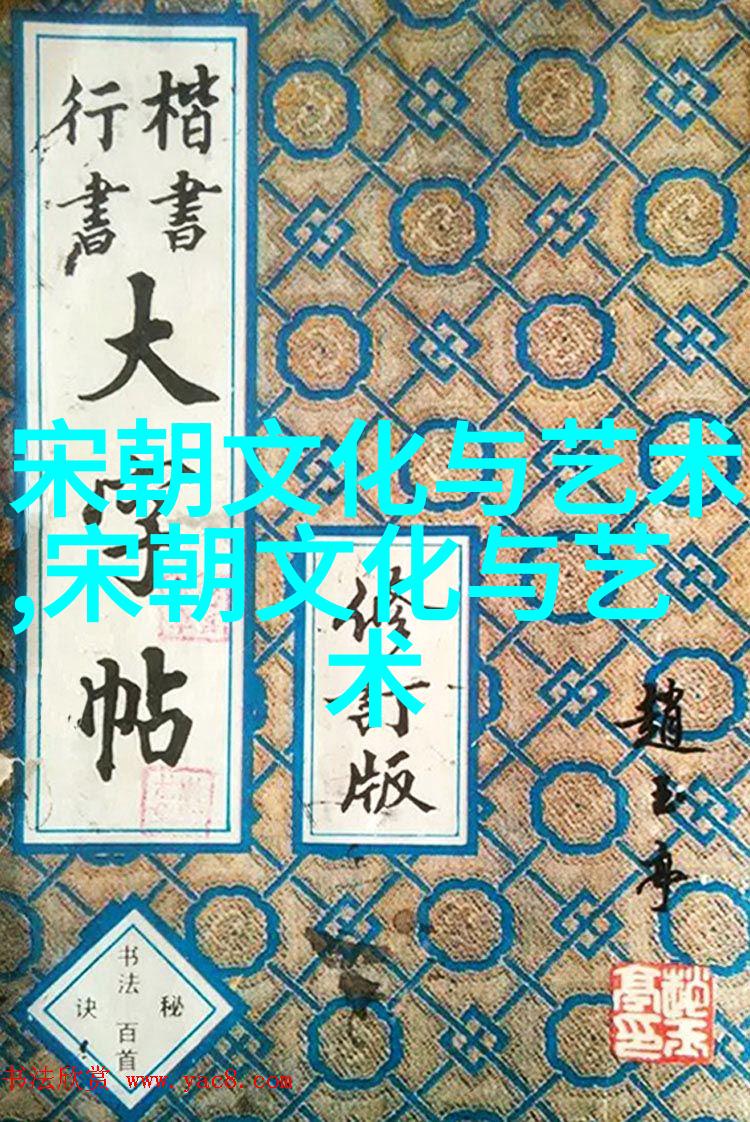 楷書
行書
大字帖
修訂版
趙玉亭
书法
百首
秘
诀
宋朝文化与艺术
,宋朝文化与艺
术
书法欣赏 www.yac8.com